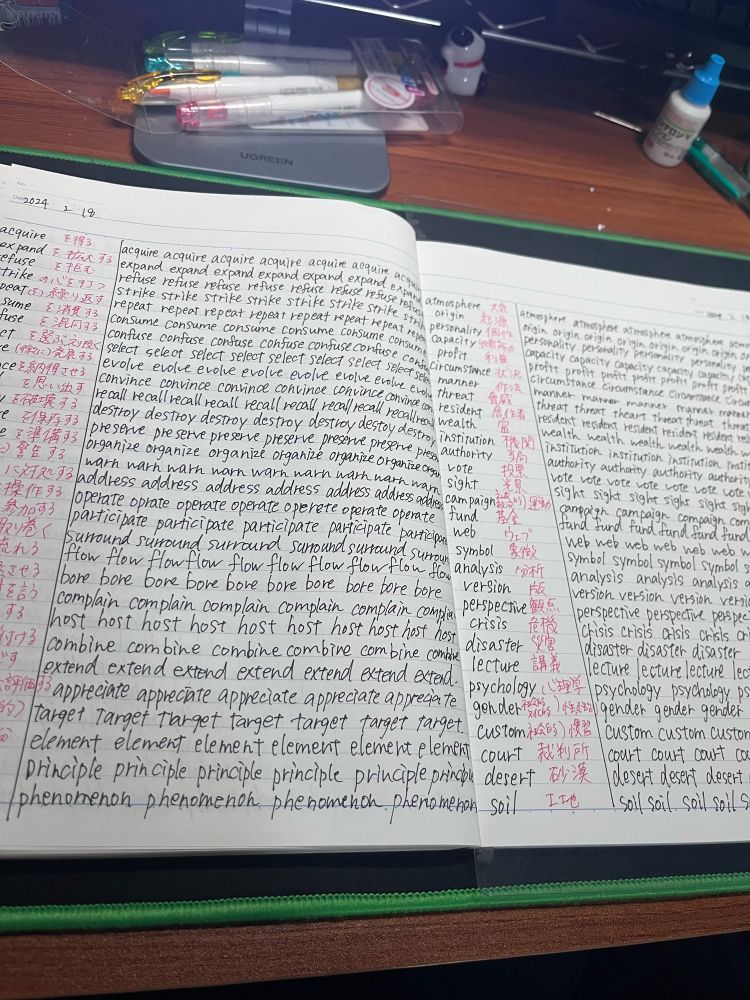 UGREEN
2024 2 18
acquire を得る acquire acquire acquire acquire acquire acquire
expand を拡大する expand expand expand expand expand expand expand
refuse を拒む refuse refuse refuse refuse refuse refuse refuse
strike の心を打つ strike strike strike strike strike strike strike
repeat 繰り返す repeat repeat repeat repeat repeat repeat repeat
を消費する consume consume consume consume consume consume
を混同する confuse confuse confuse confuse confuse confuse
を選ぶ select select select select select select select
発展する evolve evolve evolve evolve evolve evolve evolve
を納得させる convince convince convince convince convince
を思い出す recall recall recall recall recall recall recall recall
を破壊する destroy destroy destroy destroy destoy destroy
を保存する preserve preserve preserve preserve preserve
を準備する organize organize organize organize organize
警告する warn warn warn warn warn warn warn warn
に対処する address address address address address address
操作する operate oprate operate operate operete operate operate
参加する participate participate participate participate
取り巻く surround surround surround surround surround surround
流れる flow flow flow flow flow flow flow flow flow
させる bore bore bore bore bore bore bore bore bore
を言う complain complain complain complain complain
する host host host host host host host host host
付ける combine combine combine combine combine combine
extend extend extend extend extend extend
評価する appreciate appreciate appreciate appreciate appreciate
的) target target target target target target target
element element element element element element
principle principle principle principle principle
phenomenon phenomenon phenomenon phenomenon
atmosphere 大気 atmosphere atmosphere atmosphere
origin 起源 origin origin origin origin origin origin
personality 個性 personality personality personality
capacity capacity capacity capacity capacity
profit 利益 profit profit profit profit profit profit
circumstance 状況 circumstance circumstance circumstance
manner 作法 manner manner manner manner manner
threat 脅威 threat threat theart threat threat
resident 居住者 resident resident resident resident
wealth 富 wealth wealth wealth wealth wealth
institution 機関 institution institution institution
authority 当局 authority authority authority
vote 投票 vote vote vote vote vote vote
sight 光景 sight sight sight sight sight
campaign 運動 campaign campaign campaign
fund 基金 fund fund fund fund fund
web ウェブ web web web web web
symbol 象徴 symbol symbol symbol symbol
analysis 分析 analysis analysis analysis
version 版 version version version version
perspective 観点 perspective perspective
crisis 危機 crisis crisis crisis crisis
disaster 災害 disaster disaster disaster
lecture 講義 lecture lecture lecture
psychology 心理学 psychology psychology
gender gender gender gender
custom 慣習 custom custom custom
court 裁判所 court court court
desert 砂漠 desert desert desert
soil 土地 soil soil soil soil